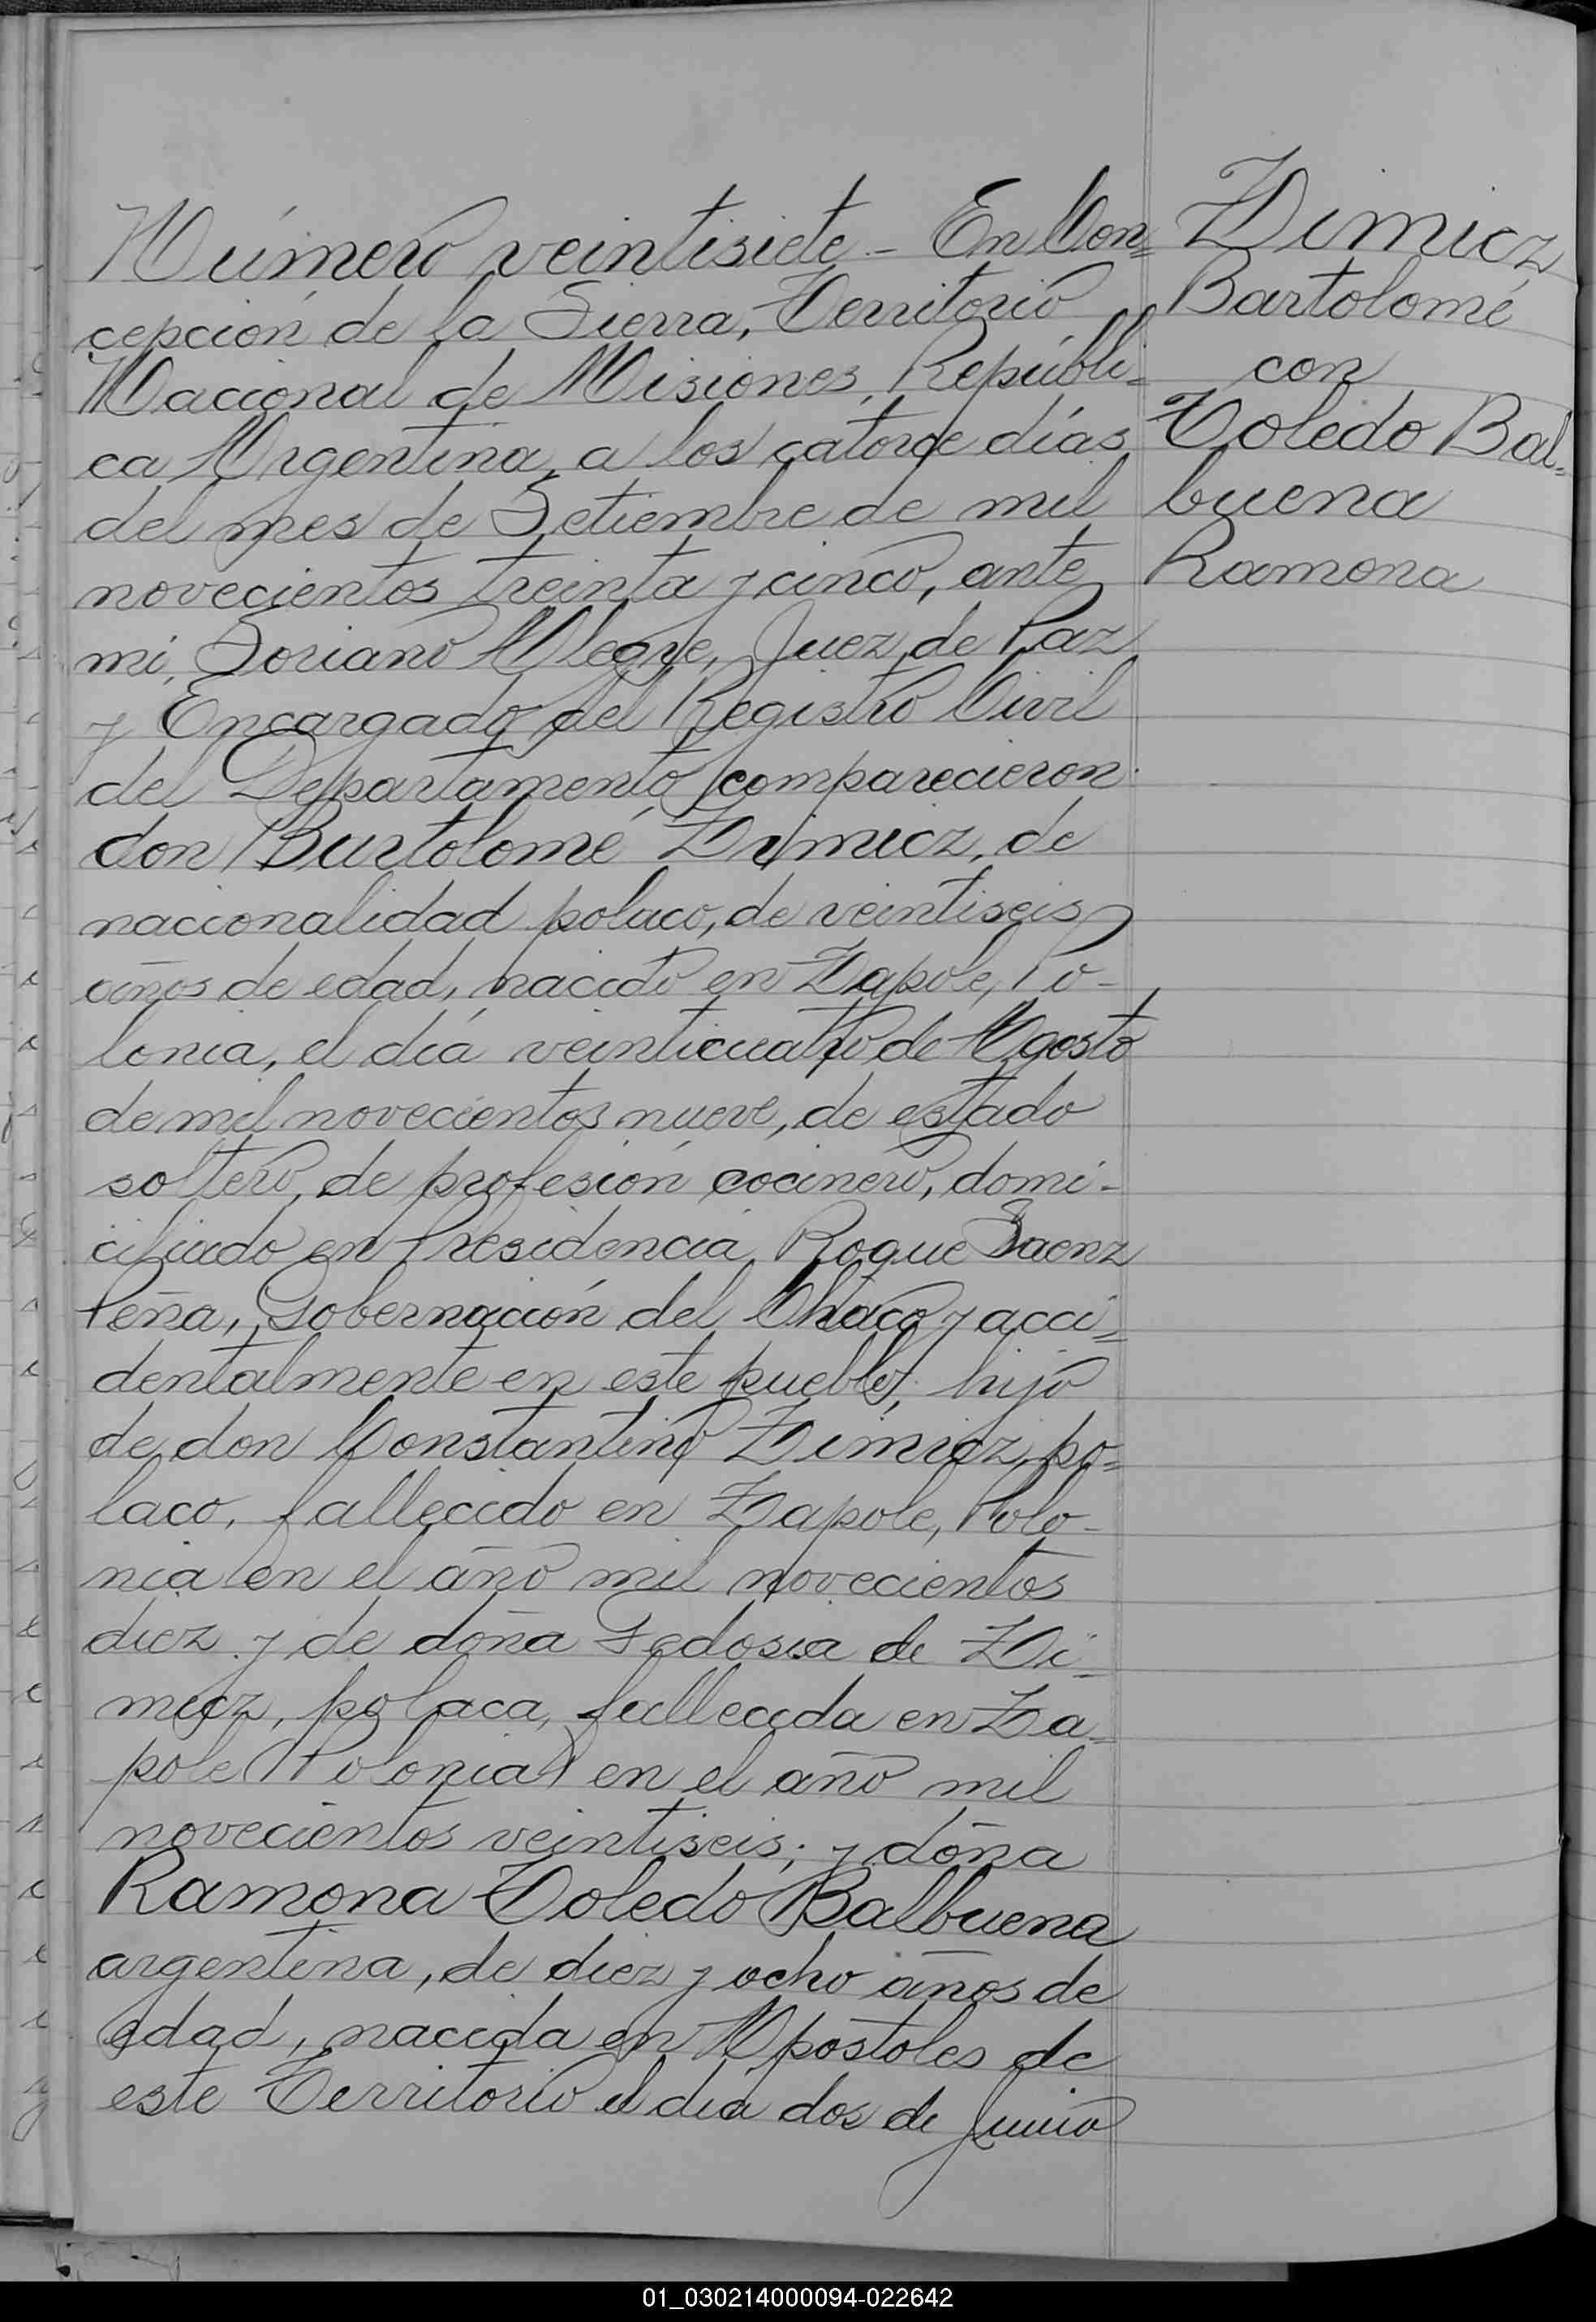 Número veintisiete - En Con=
cepción de la Sierra, Territorio
Nacional de Misiones, Repúbli=
ca Argentina, a los catorce días
del mes de Setiembre de mil
novecientos treinta y cinco, ante
mi, Soriano Alegre, Juez de Paz
y Encargado del Registro Civil
del Departamento comparecieron
don Bartolomé Zimicz, de
nacionalidad polaco, de veintiseis
años de edad, nacido en Zapole, Po-
lonia, el día veinticuatro de Agosto
de mil novecientos nueve, de estado
soltero, de profesión cocinero, domi-
ciliado en Presidencia Roque Saenz
Peña, Gobernación del Chaco y acci=
dentalmente en este pueblo, hijo
de don Constantino Zimicz, po=
laco, fallecido en Zapole, Polo-
nia en el año mil novecientos
diez y de doña Fedosia de Zi=
micz, polaca, fallecida en Za=
pole (Polonia) en el año mil
novecientos veintiseis; y doña
Ramona Toledo Balbuena
argentina, de diez y ocho años de
edad, nacida en Apostoles de
este Territorio el día dos de Junio
Zimicz
Bartolomé
con
Toledo Bal=
buena
Ramona
01_030214000094-022642